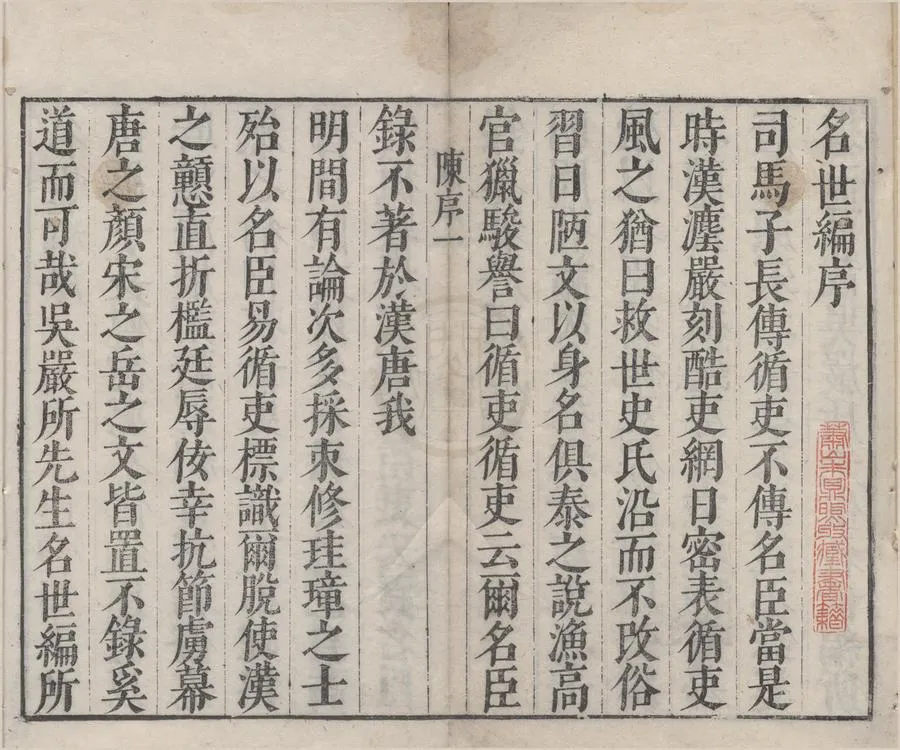 名世編序
司馬子長傳循吏不傳名臣當是
時漢灋嚴刻酷吏網日密表循吏
風之猶曰救世史氏沿而不改俗
習日陋文以身名俱泰之說漁高
官獵駿譽曰循吏循吏云爾名臣
陳序一
錄不著於漢唐我
明間有論次多採束修珪璋之士
殆以名臣易循吏標識爾脫使漢
之戇直折檻廷辱佞幸抗節虜幕
唐之顏宋之岳之文皆置不錄奚
道而可哉吳嚴所先生名世編所